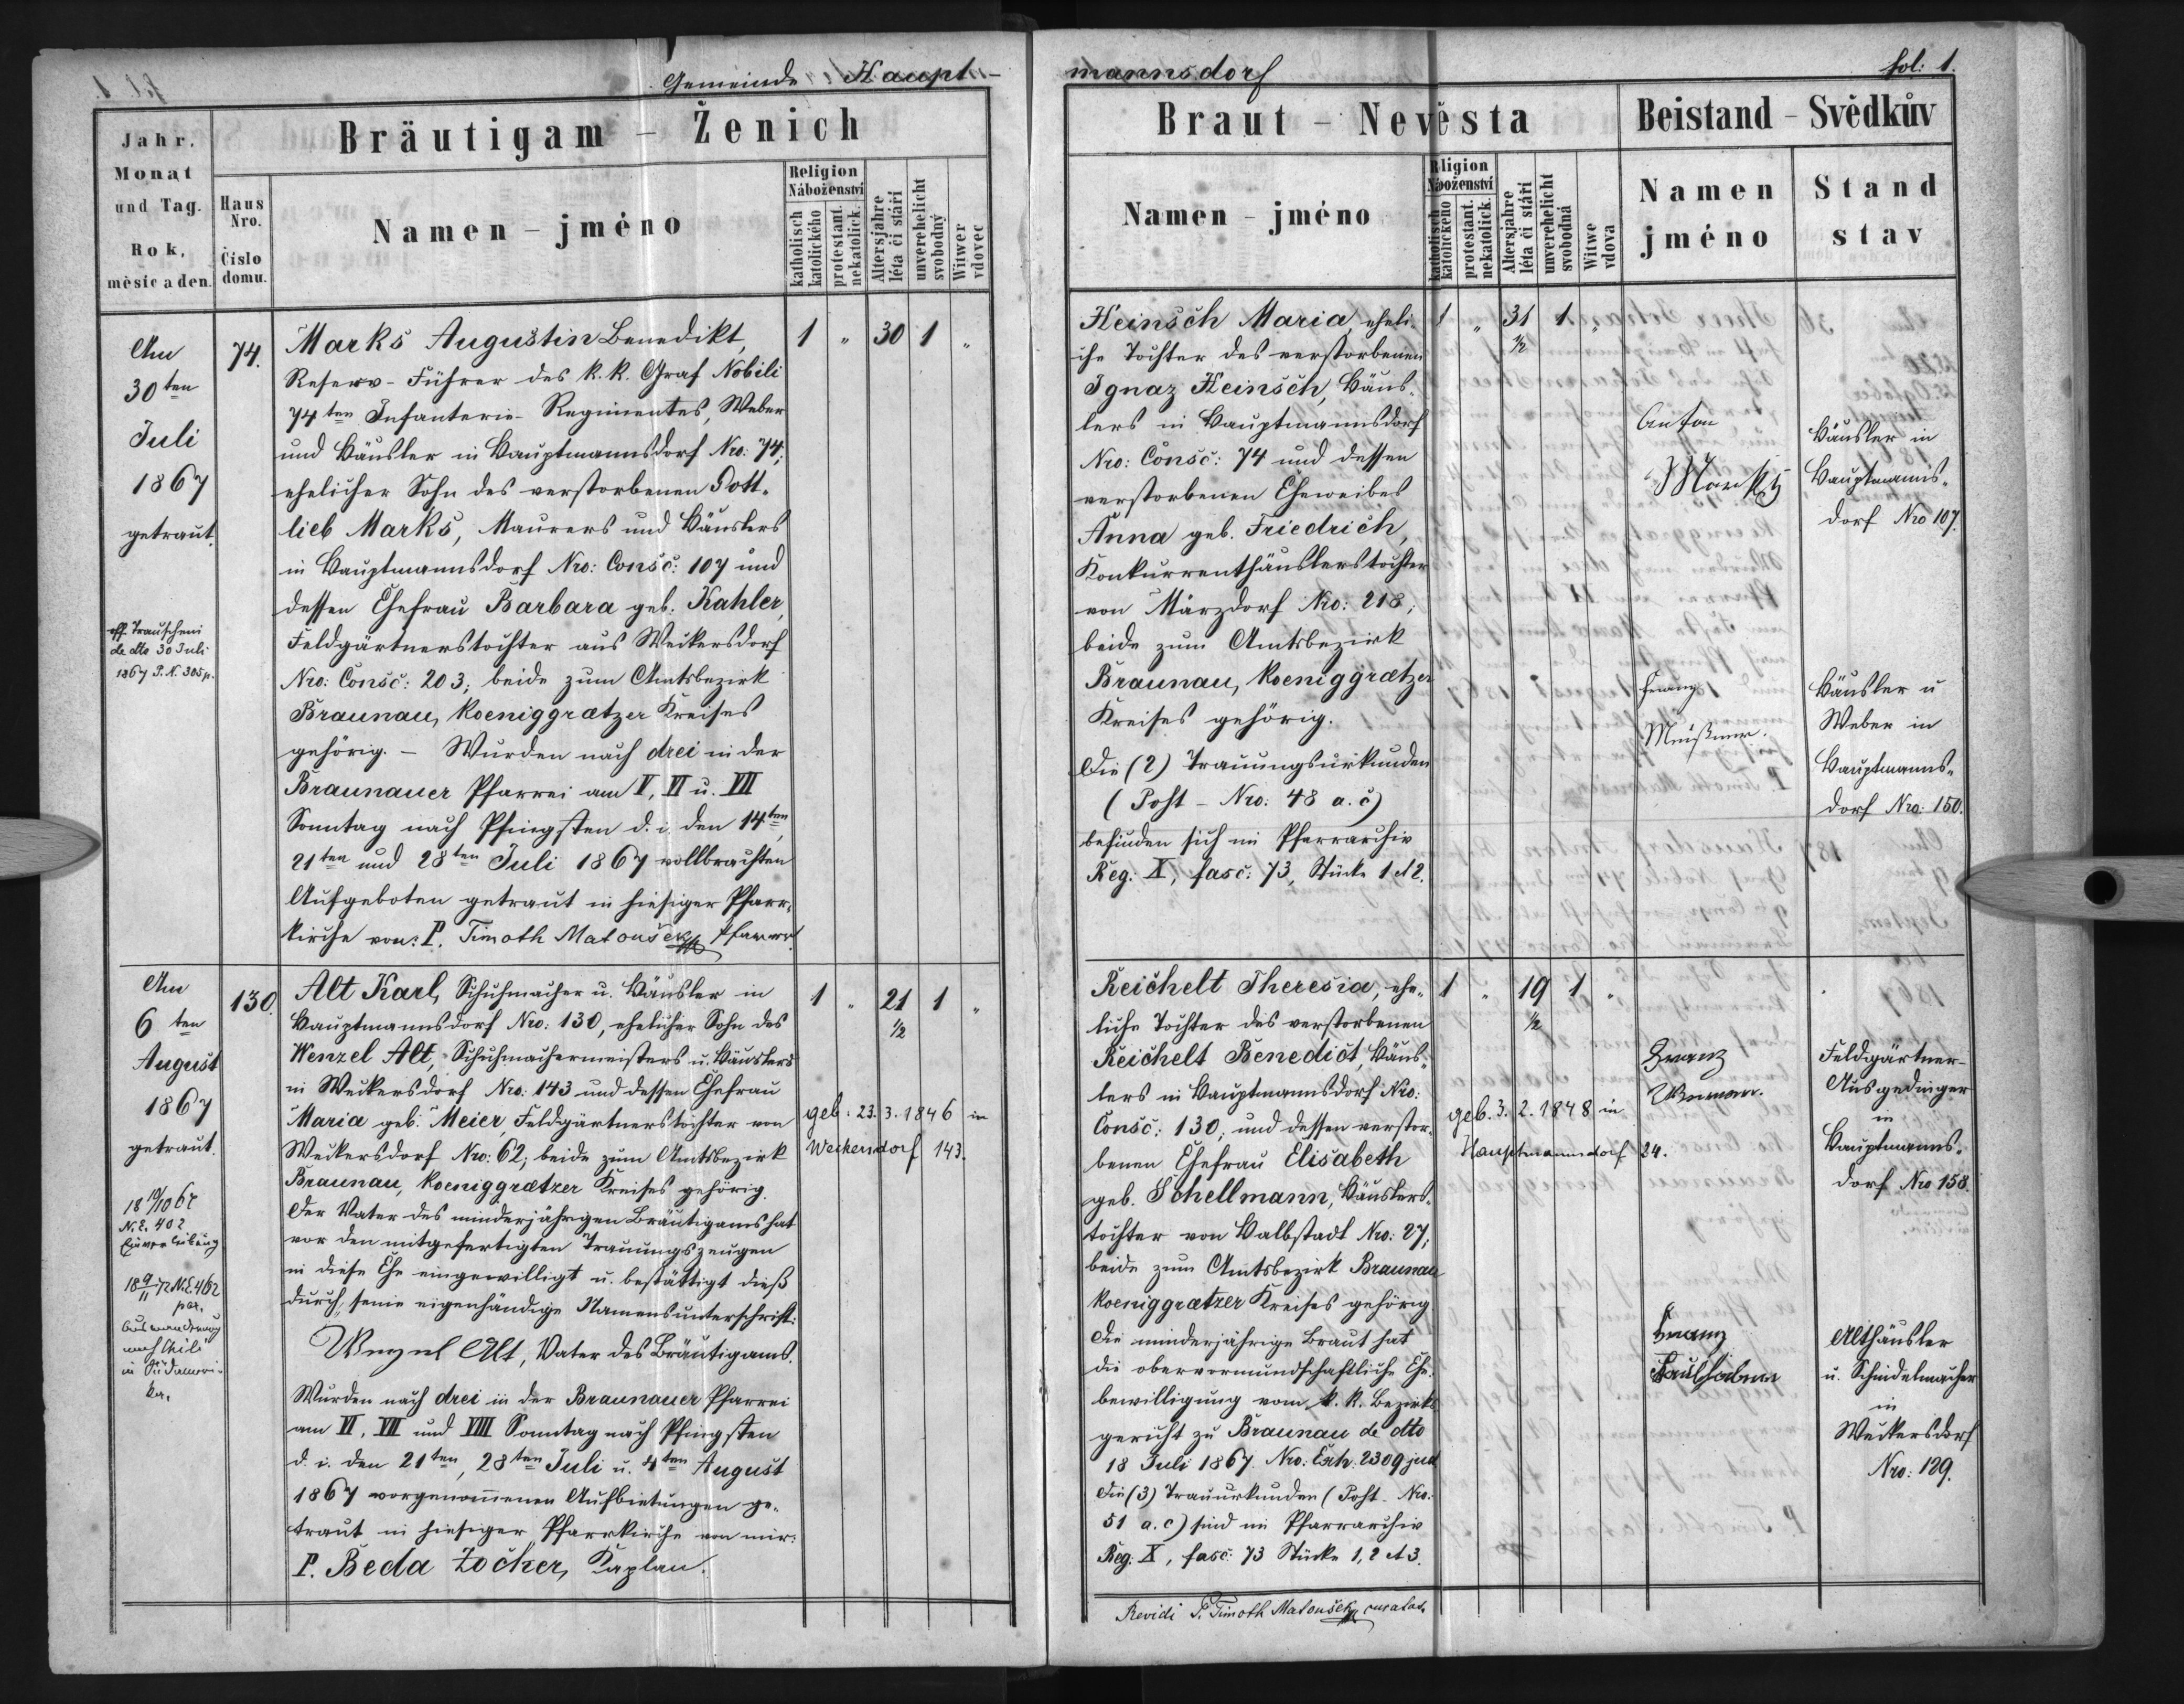 Gemeinde Haupt-
mannsdorf
fol: 1.
Jahr,
Monat
und Tag.
Rok,
měsíc a den.
Bräutigam - Ženich
Haus
Nro.
Číslo
domu.
Namen - jméno
Religion
Náboženství
katholisch
katolického
protestant.
nekatolick.
Altersjahre
léta či stáří
unverehelicht
svobodný
Witwer
vdovec
Am
30ten
Juli
1867
getraut.
eff. Trauschein
de dto 30 Juli
1867 P. N. 305 p.
74.
Marks Augustin Benedikt,
Reserv-Führer des k. k. Graf Nobili
74ten Infanterie-Regimentes, Weber
und Häusler in Hauptmannsdorf Nro: 74;
ehelicher Sohn des verstorbenen Gott-
lieb Marks, Maurers und Häuslers
in Hauptmannsdorf Nro: Consc: 107 und
dessen Ehefrau Barbara geb. Kahler,
Feldgärtnerstochter aus Weckersdorf
Nro: Consc: 203; beide zum Amtsbezirk
Braunau, Koeniggrætzer Kreises
gehörig. – Wurden nach drei in der
Braunauer Pfarrei am V, VI u. VII
Sonntag nach Pfingsten d. i. den 14ten,
21ten und 28ten Juli 1867 vollbrachten
Aufgeboten getraut in hiesiger Pfarr-
kirche von: P. Timoth Matoušek Pfarrer
1 " 30 1 "
Am
6ten
August
1867
getraut.
18 19/10 67
N. E. 402
Einverleibung
18 9/11 72 N. E. 462
par.
Auswanderung
nach Chili
in Südameri-
ka.
130.
Alt Karl, Schuhmacher u. Häusler in
Hauptmannsdorf Nro: 130, ehelicher Sohn des
Wenzel Alt, Schuhmachermeisters u. Häuslers
in Weckersdorf Nro: 143 und dessen Ehefrau
Maria geb. Meier, Feldgärtnerstochter von
Weckersdorf Nro: 62; beide zum Amtsbezirk
Braunau, Koeniggrætzer Kreises gehörig.
Der Vater des minderjährigen Bräutigams hat
vor den mitgefertigten Trauungszeugen
in diese Ehe eingewilligt u. bestättigt dieß
durch seine eigenhändige Namensunterschrift:
Wenzel Alt, Vater des Bräutigams.
Wurden nach drei in der Braunauer Pfarrei
am VI, VII und VIII Sonntag nach Pfingsten
d. i. den 21ten, 28ten Juli u. 4ten August
1867 vorgenommenen Aufbietungen ge-
traut in hiesiger Pfarrkirche von mir:
P. Beda Zocker, Kaplan.
1 " 21 1/2 1 "
geb. 23. 3. 1846 in
Weckersdorf 143.
Braut - Nevěsta
Namen - jméno
Rligion
Náboženství
katholisch
katolického
protestant.
nekatolick.
Altersjahre
léta či stáří
unverehelicht
svobodná
Witwe
vdova
Heinsch Maria, eheli-
che Tochter des verstorbenen
Ignaz Heinsch, Häus-
lers in Hauptmannsdorf
Nro: Consc: 74 und dessen
verstorbenen Eheweibes
Anna geb. Friedrich,
Konkurrenthäuslerstochter
von Märzdorf Nro: 218;
beide zum Amtsbezirk
Braunau, Koeniggrætzer
Kreises gehörig.
Die (2) Trauungsurkunden
(Post-Nro: 48 a. c)
befinden sich im Pfarrarchiv
Reg. X, fasc: 73, Stücke 1 et 2.
1 " 31 1/2 1 "
Reichelt Theresia, ehe-
liche Tochter des verstorbenen
Reichelt Benedict, Häus-
lers in Hauptmannsdorf Nro:
Consc: 130; und dessen verstor-
benen Ehefrau Elisabeth
geb. Schellmann, Häuslers-
tochter von Halbstadt Nro: 27;
beide zum Amtsbezirk Braunau
Koeniggrætzer Kreises gehörig
Die minderjährige Braut hat
die obervormundschaftliche Ehe-
bewilligung vom k. k. Bezirks-
gericht zu Braunau de dto
18 Juli 1867. Nro: Exh. 2309 jud
Die (3) Trauurkunden (Post-Nro:
51 a. c) sind im Pfarrarchiv
Reg. X, fasc: 73 Stücke 1, 2 et 3.
1 " 19 1/2 1 "
geb. 3. 2. 1848 in
Hauptmannsdorf 24.
Revidi P. Timoth Matoušek
Beistand - Svědkův
Namen
jméno
Stand
stav
Anton
Marks
Häusler in
Hauptmanns-
dorf Nro 107.
Franz
Meißner.
Häusler u
Weber in
Hauptmanns-
dorf Nro: 150.
Franz
Feldgärtner-
Ausgedinger
in
Hauptmanns-
dorf Nro 158.
Franz
Althäusler
u. Schindelmacher
in
Weckersdorf
Nro: 129.